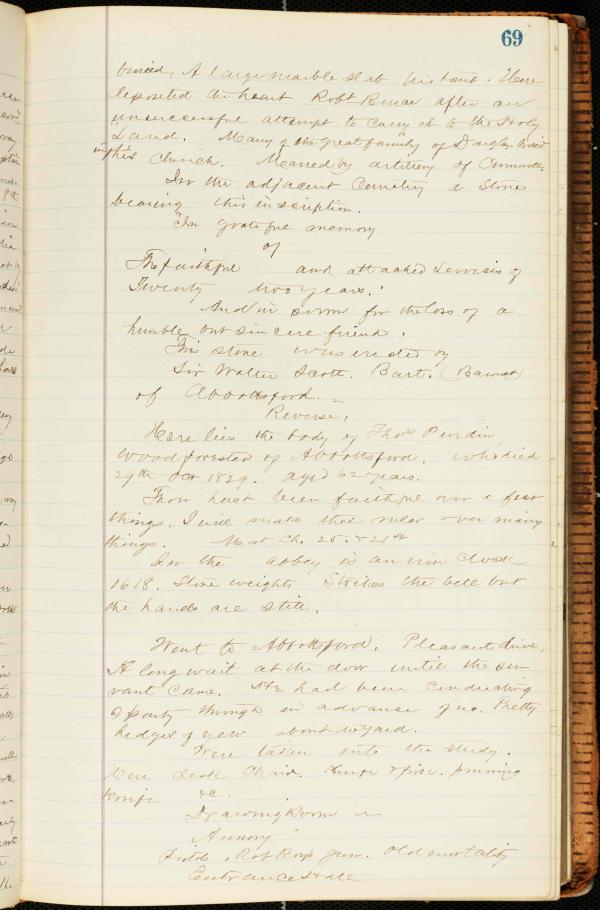 69
buried, A large marble slab his tomb. Here
deposited the heart Robt Bruce after an
unsuccessful attempt to carry it to the Holy
Land. Many of the great family of Douglas buried
in this Church. Marred by artillery of Cromwell.
In the adjacent Cemetery a Stone
bearing this inscription.
"In grateful memory
of
The faithful and attached Services of
Twenty two years."
And in sorrow for the loss of a
humble but sincere friend.
This stone was erected by
Sir Walter Scott. Bart. (Baronet)
of Abbottsford.
Reverse,
Here lies the body of Thos Purdin
Wood forester of Abbottsford. who died
29th Oct 1829. aged 62 years.
Thou hast been faithful over a few
things, I will make thee ruler over many
things. Mat. Ch. 25. v 21st
In the abbey is an iron clock
1618. Stone weights Strikes the bell but
the hands are still.
Went to Abbottsford. Pleasant drive,
A long wait at the door until the ser-
vant came. He had been conducting
a party through in advance of us. Pretty
hedges of yew about the yard.
Were taken into the study.
Here desk Chair. Knife & fork. pruning
knife &c.
Drawing Room
Armory
Pistols, Rob Roys gun. Old mortality
Entrance Hall